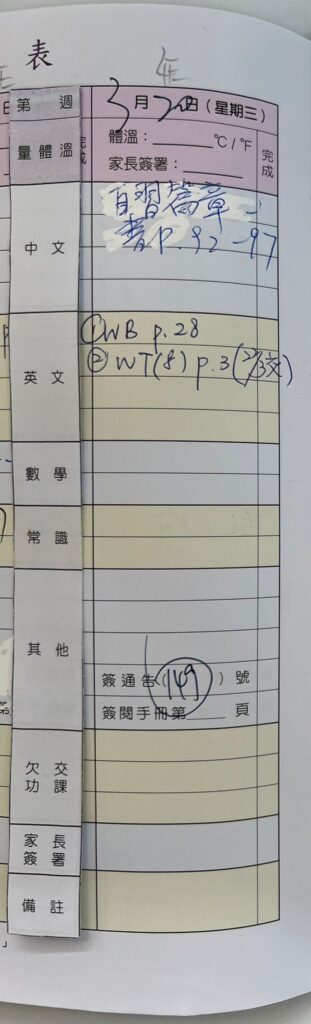 表
第 週
3月20日(星期三)
量體溫
體溫：______℃/℉
家長簽署：______
完成
中文
自習篇章
書p.92-97
英文
①WB p.28
②WT(8) p.3(2/3交)
數學
常識
其他
簽通告(149)號
簽閱手冊第______頁
欠交功課
家長簽署
備註